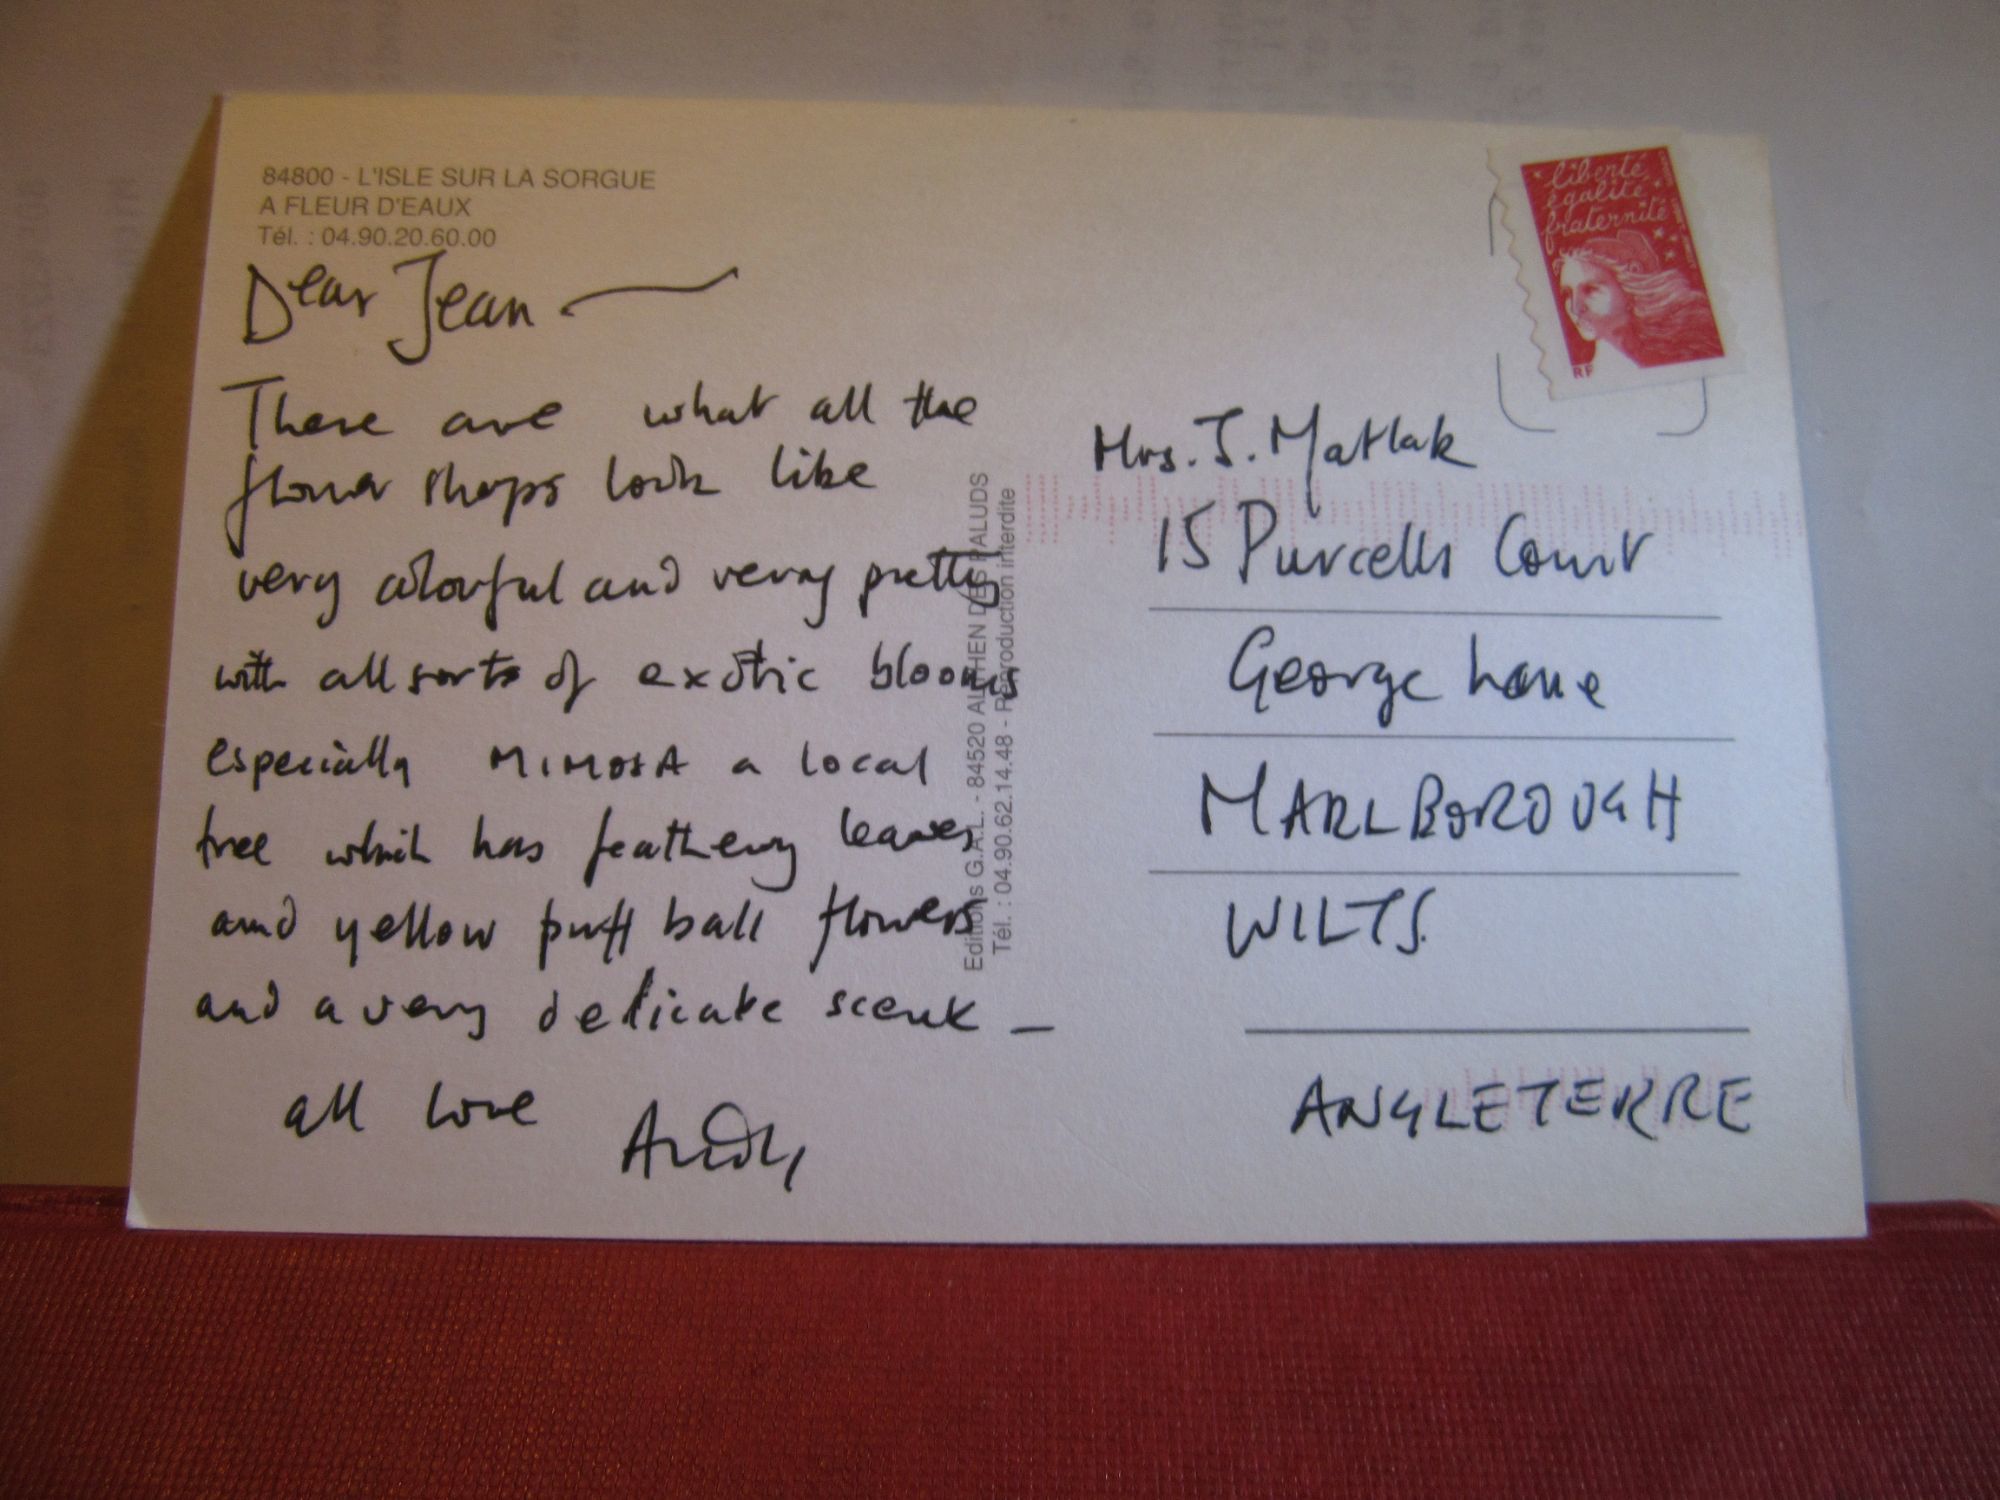 84800 - L'ISLE SUR LA SORGUE
A FLEUR D'EAUX
Tél. : 04.90.20.60.00
Dear Jean —
These are what all the
flower shops look like
very colorful and very pretty
with all sorts of exotic blooms
especially MIMOSA a local
tree which has feathery leaves
and yellow puff ball flowers
and a very delicate scent —
all love Andy
Editions G.A.L. - 84520 ALTHEN DES PALUDS
Tél. : 04.90.62.14.48 - Reproduction interdite
liberté
égalité
fraternité
RF
Mrs. J. Matlak
15 Purcells Court
George Lane
MARLBOROUGH
WILTS.
ANGLETERRE